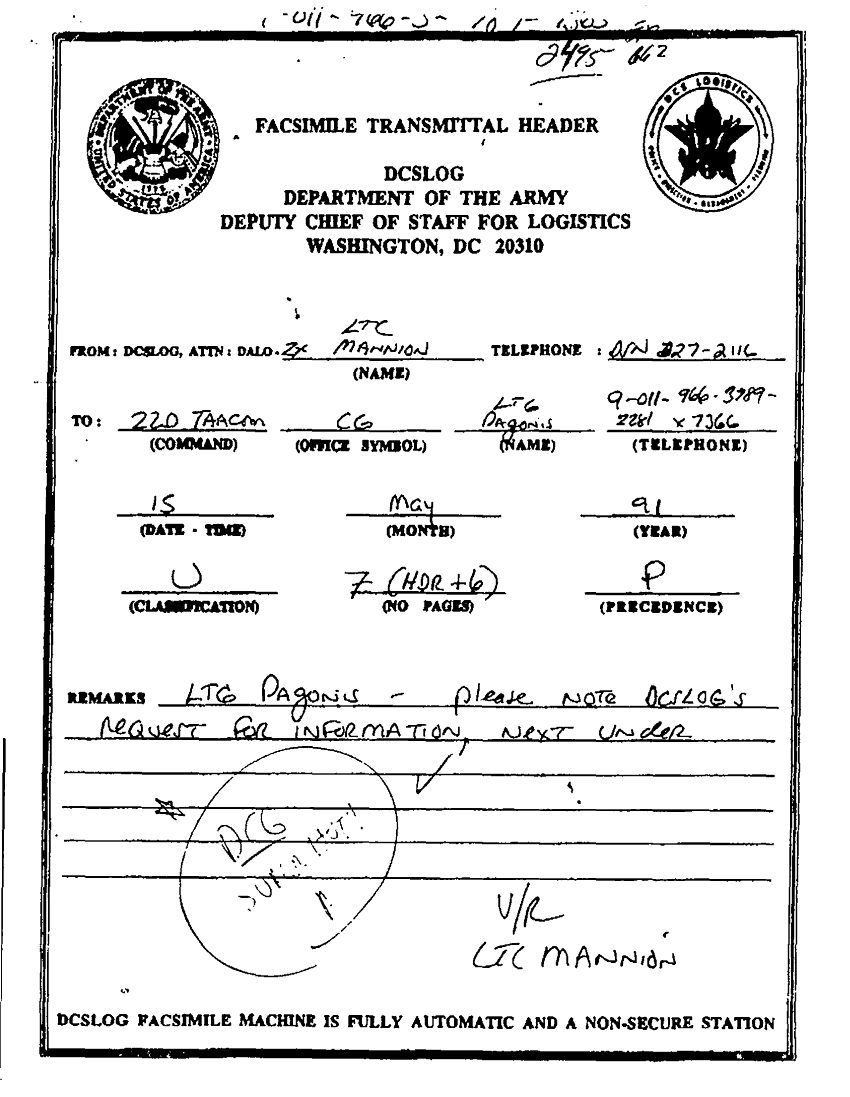 2495 662
DEPARTMENT OF THE ARMY
UNITED STATES OF AMERICA
1775
DCS LOGISTICS
FACSIMILE TRANSMITTAL HEADER
DCSLOG
DEPARTMENT OF THE ARMY
DEPUTY CHIEF OF STAFF FOR LOGISTICS
WASHINGTON, DC 20310
LTC
FROM: DCSLOG, ATTN: DALO-ZX MANNION TELEPHONE : D/N 227-2116
(NAME)
LTG 9-011-966-3789-
TO: 22D TAACOM CG PAGONIS 2281 x 7366
(COMMAND) (OFFICE SYMBOL) (NAME) (TELEPHONE)
15 May 91
(DATE - TIME) (MONTH) (YEAR)
U 7 (HDR + 6) P
(CLASSIFICATION) (NO PAGES) (PRECEDENCE)
REMARKS LTG PAGONIS - Please NOTE DCSLOG's
request for INFORMATION, NEXT UNDER
DCG
SUPER HOT!
V/R
LTC MANNION
DCSLOG FACSIMILE MACHINE IS FULLY AUTOMATIC AND A NON-SECURE STATION